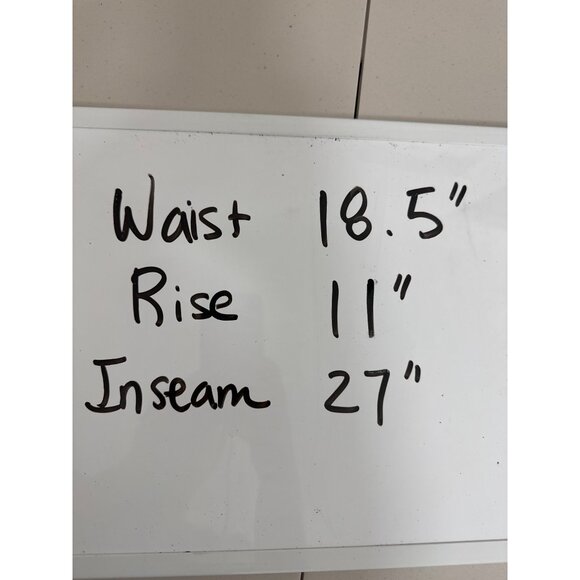 Waist 18.5"
Rise 11"
Inseam 27"